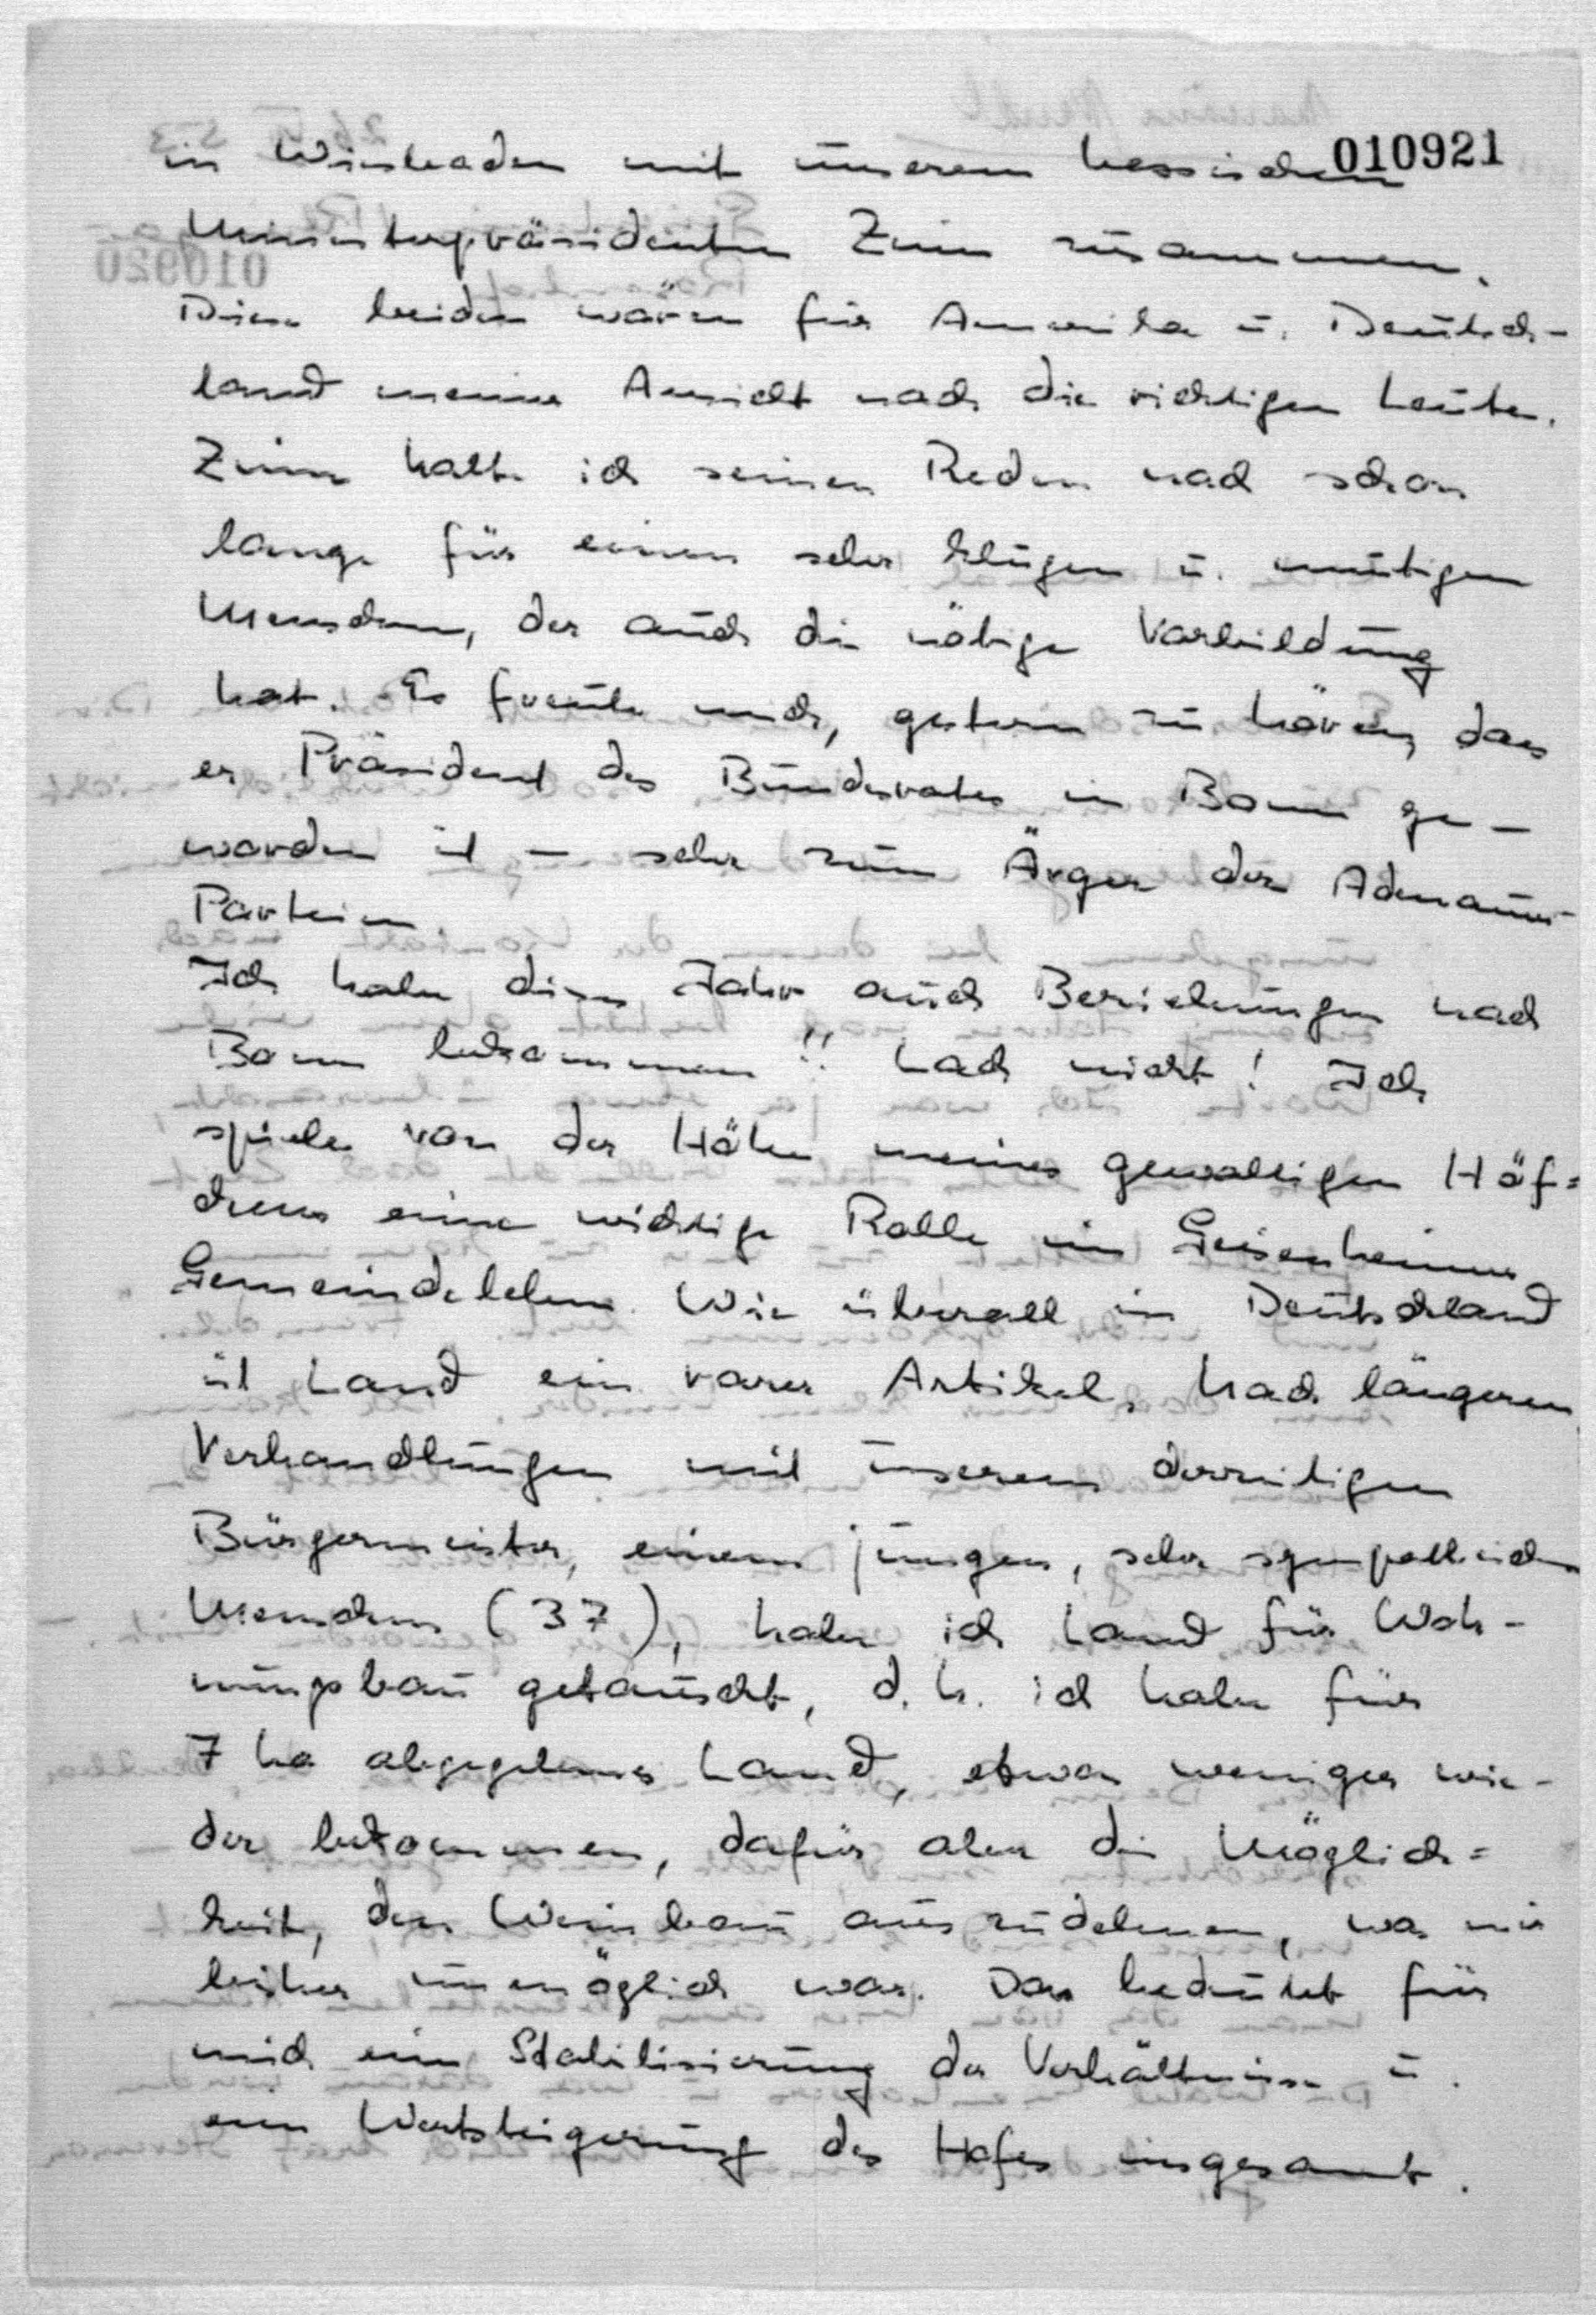 010921
in Wiesbaden mit unserem hessischen
Ministerpräsidenten Zinn zusammen.
Diese beiden wären für Amerika u. Deutsch-
land meiner Ansicht nach die richtigen Leute.
Zinn halte ich seinen Reden nach schon
lange für einen sehr klugen u. mutigen
Menschen, der auch die nötige Vorbildung
hat. Es freute mich, gestern zu hören, dass
er Präsident des Bundesrates in Bonn ge-
worden ist - sehr zum Ärger der Adenauer-
Parteien.
Ich habe dieses Jahr auch Beziehungen nach
Bonn bekommen!! Lach nicht! Ich
spiele von der Höhe meines gewaltigen Höf=
chens eine wichtige Rolle im Geisenheimer
Gemeindeleben. Wie überall in Deutschland
ist Land ein rarer Artikel. Nach längeren
Verhandlungen mit unserem derzeitigen
Bürgermeister, einem jungen, sehr sympathischen
Menschen (37), habe ich Land für Woh-
nungsbau getauscht, d.h. ich habe für
7 ha abgegebenes Land, etwas weniger wie-
der bekommen, dafür aber die Möglich=
keit, den Weinbau auszudehnen, was mir
bisher unmöglich war. Das bedeutet für
mich eine Stabilisierung der Verhältnisse u.
eine Wertsteigerung des Hofes insgesamt.